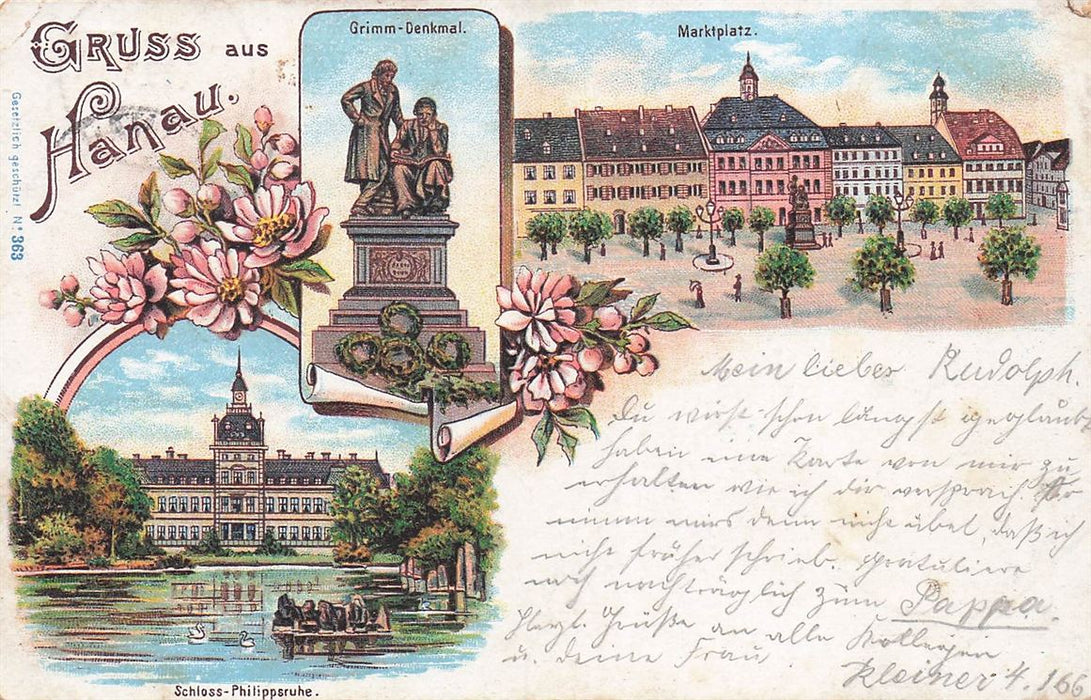 GRUSS aus
Hanau.
Gesetzlich geschützt. N° 363
Grimm-Denkmal.
Marktplatz.
Schloss-Philippsruhe.
Mein lieber Rudolph.
Du wirst schon längst geglaubt
haben eine Karte von mir zu
erhalten wie ich dir versprach.
nimm mirs denn nicht übel, daß ich
nicht früher schrieb. gratuliere
noch nachträglich zum Pappa.
Herzl. Grüße an alle Kollegen
u. deine Frau.